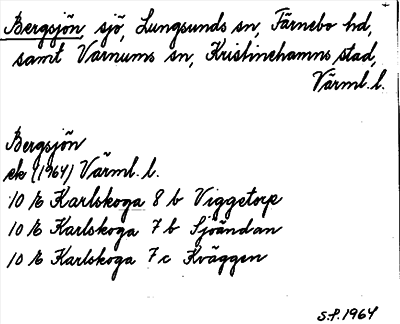 Bergsjön, sjö, Lungsunds sn, Färnebo hd,
samt Varnums sn, Kristinehamns stad,
Värml. l.
Bergsjön
ek (1964) Värml. l.
10 E Karlskoga 8 b Viggetorp
10 E Karlskoga 7 b Sjöändan
10 E Karlskoga 7 c Kväggen
S.P. 1964